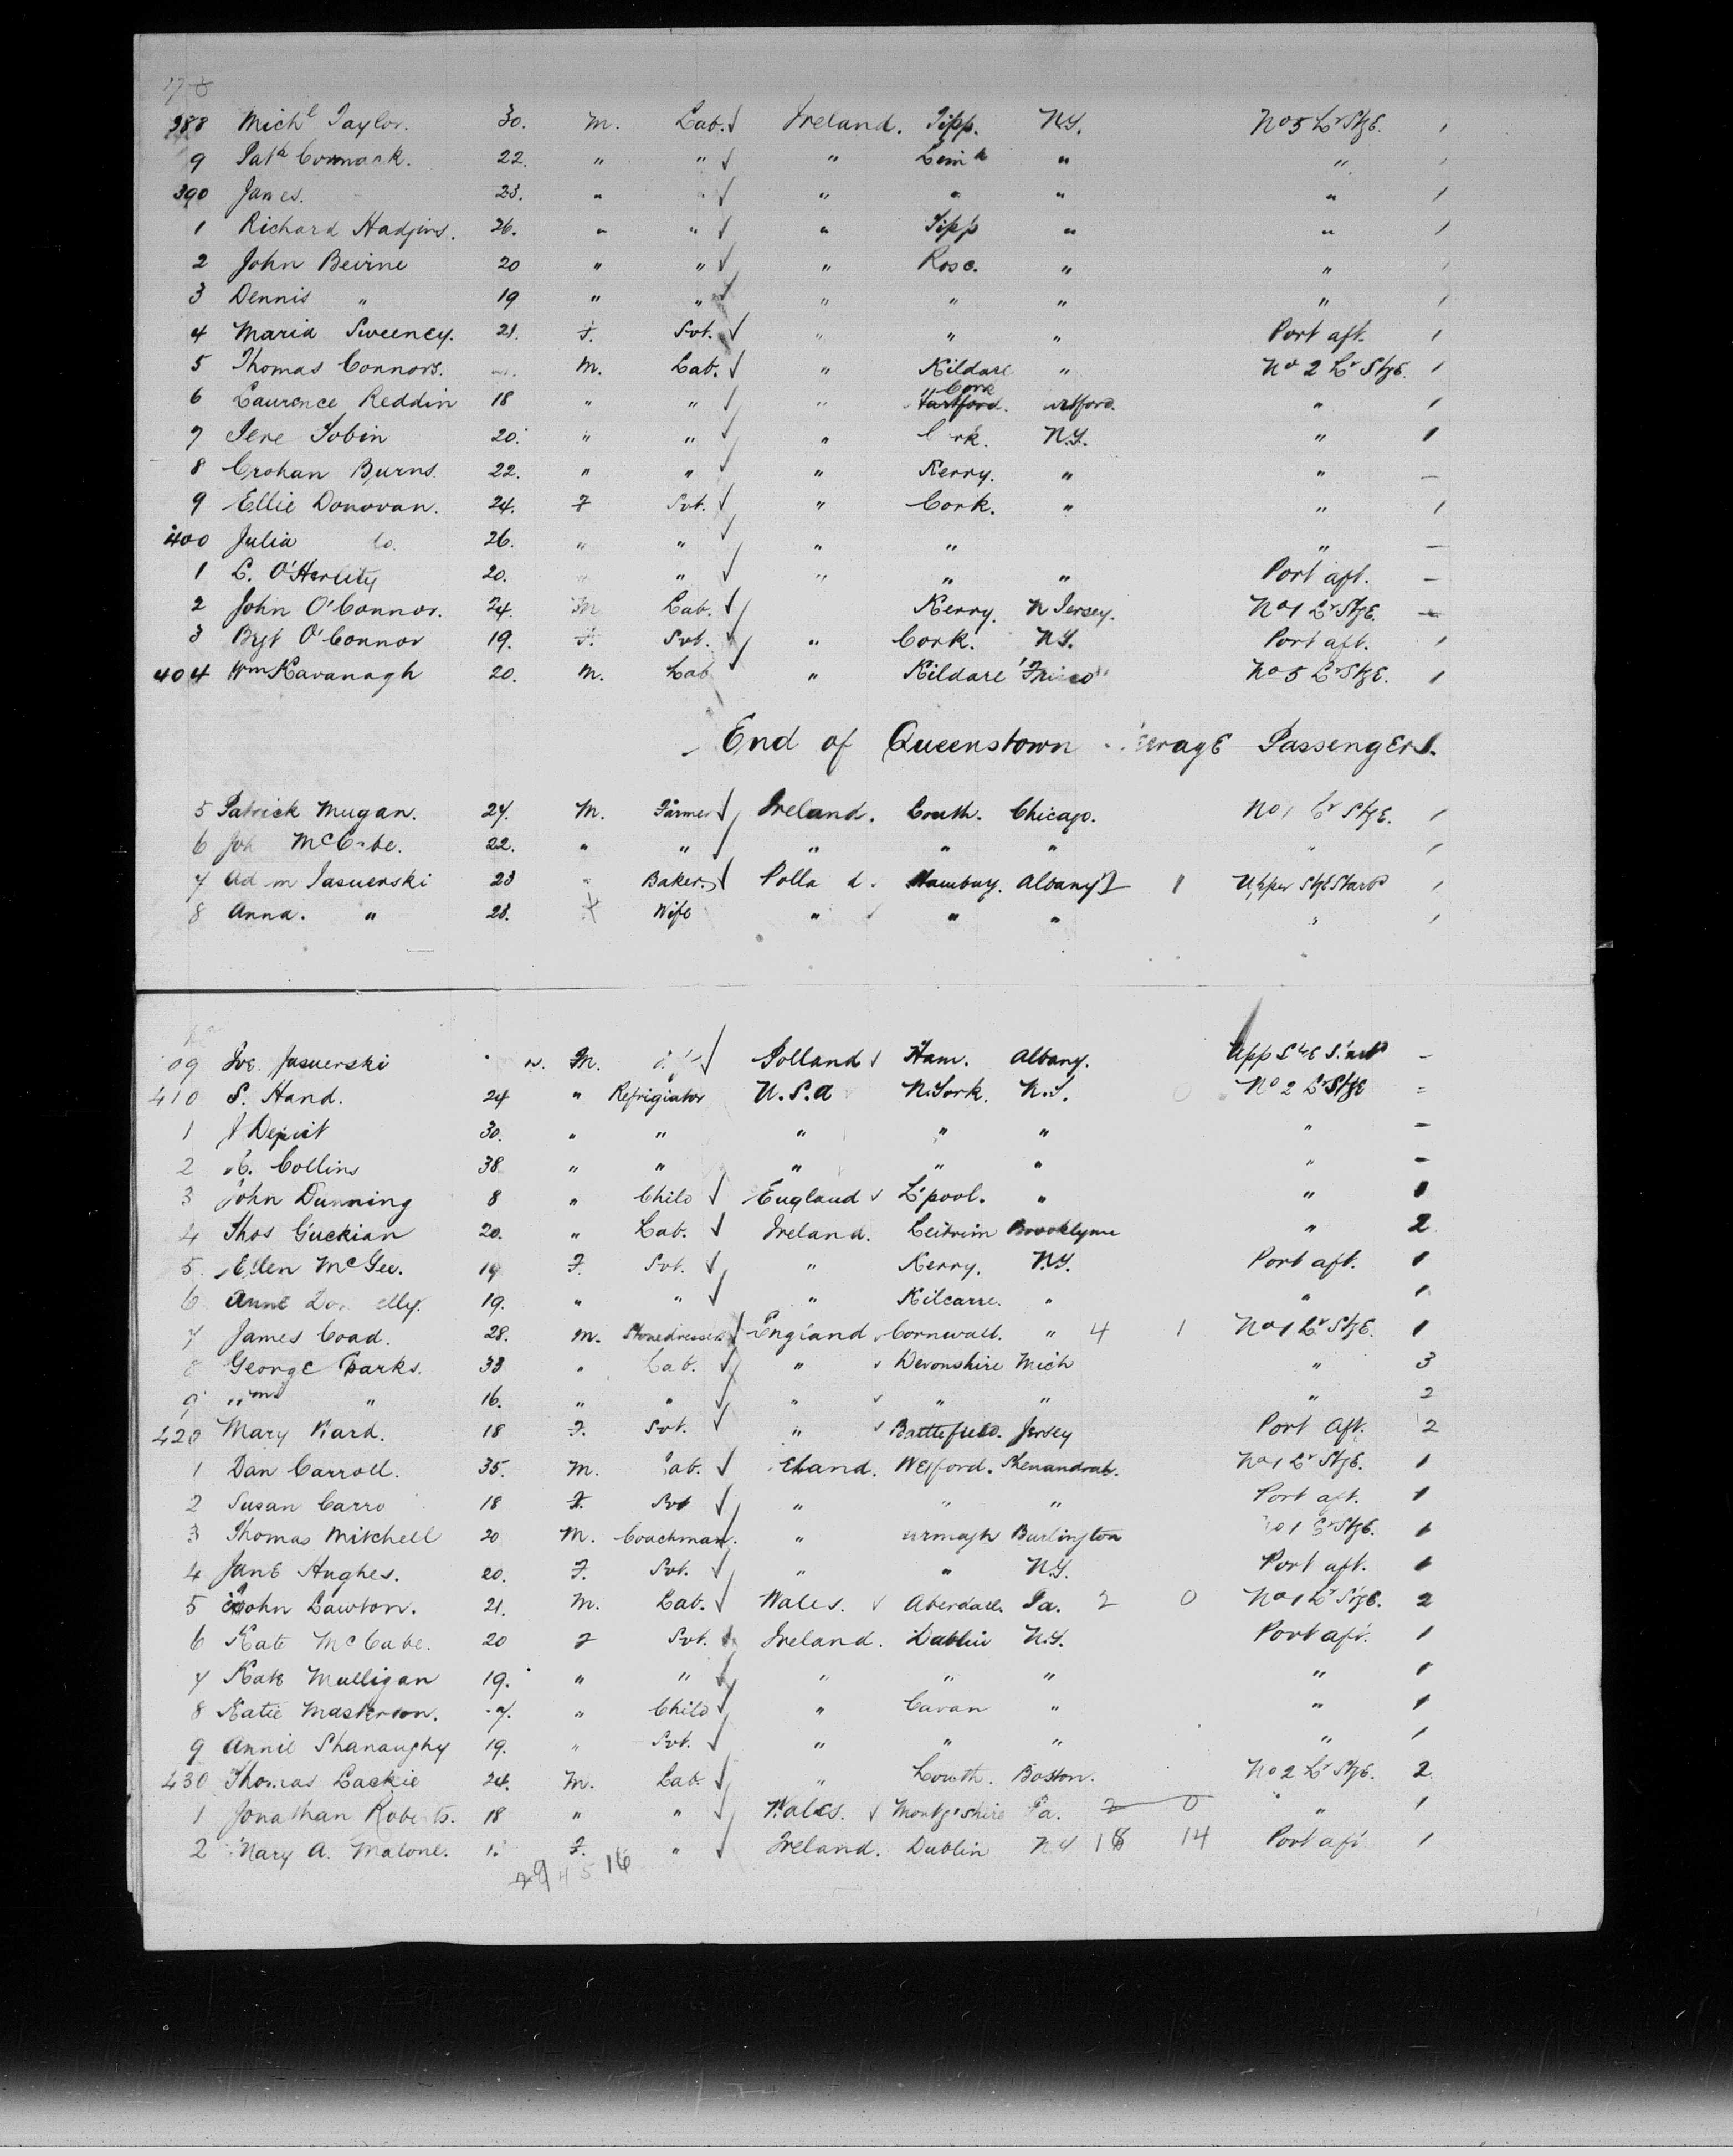 388 Michl Taylor. 30. M. Lab. Ireland. Tipp. N.Y. No 5 Lr Stge. 1
9 Patk Cormack. 22. " " " " " 1
390 James. 23. " " " " " " 1
1 Richard Hadgins. 26. " " " Tipp " " 1
2 John Beirne 20 " " " Rosc. " " 1
3 Dennis " 19 " " " " " " 1
4 Maria Sweeney. 21. F. Svt. " " " Port aft. 1
5 Thomas Connors. M. Lab. " Kildare " No 2 Lr Stge. 1
6 Laurence Reddin 18 " " " Cork Hartford. " 1
7 Jere Tobin 20. " " " N.Y. " 1
8 Crohan Burns. 22. " " " Kerry. " " –
9 Ellie Donovan. 24. F Svt. " Cork. " " 1
400 Julia Do. 26. " " " " " –
1 20. " " " " " Port aft. –
2 John O'Connor. 24. M Lab. Kerry. N Jersey. No 1 Lr Stge. –
3 Bgt O'Connor 19. F. Svt. " Cork. N.Y. Port aft. 1
404 Wm Kavanagh 20. M. Lab " Kildare "Frisco" No 5 Lr Stge. 1
End of Queenstown Passengers.
5 Patrick Mugan. 27. M. Farmer Ireland. Louth. Chicago. No 1 Lr Stge. 1
6 22. " " " " " " 1
7 23 " Baker. Hamburg. Albany 2 1 Upper Stge Starbd 1
8 Anna. " 23. F Wife " " " " 1
09 M. Polland Ham. Albany. –
410 S. Hand. 24 " Refrigiator U.S.A N.York. N.Y. 0 No 2 Lr Stge =
1 30. " " " " " " –
2 Collins 38 " " " " " " –
3 John Dunning 8 " Child England L'pool. " " 1
4 Thos Guckian 20. " Lab. Ireland. Leitrim Brooklyne " 2
5. Ellen McGee. 19 F. Svt. " Kerry. N.Y. Port aft. 1
6 Anne 19. " " " Kilcarre. " " 1
7 James Coad. 28. M. Stonedresser England Cornwall. " 4 1 No 1 Lr Stge. 1
8 George Parks. 33 " Lab. " Devonshire Mich " 3
9 " 16. " " " " " " 2
420 Mary Ward. 18 F. Svt. " Battlefield. Jersey Port Aft. 2
1 Dan Carroll. 35. M. Wexford. No 1 Lr Stge. 1
2 Susan 18 F. Svt " " " Port aft. 1
3 Thomas Mitchell 20 M. Coachman. " Burlington 1
4 Jane Hughes. 20. F. Svt. " " N.Y. Port aft. 1
5 John Lawton. 21. M. Lab. Wales. Aberdare. Pa. 2 0 No 1 Lr Stge. 2
6 Kate McCabe. 20 F Svt. Ireland. Dublin N.Y. Port aft. 1
7 Kate Mulligan 19. " " " " " " 1
8 Katie Masterson. " Child " Cavan " " 1
9 Annie Shanaughy 19. " Svt. " " " " 1
430 Thomas Lackie 24. M. Lab. " Louth. Boston. No 2 Lr Stge. 2
1 Jonathan Roberts. 18 " " Wales. Montg'shire Pa. 2 0 " 1
2 Mary A. Malone. F. " Ireland. Dublin N Y 18 14 Port aft 1
16